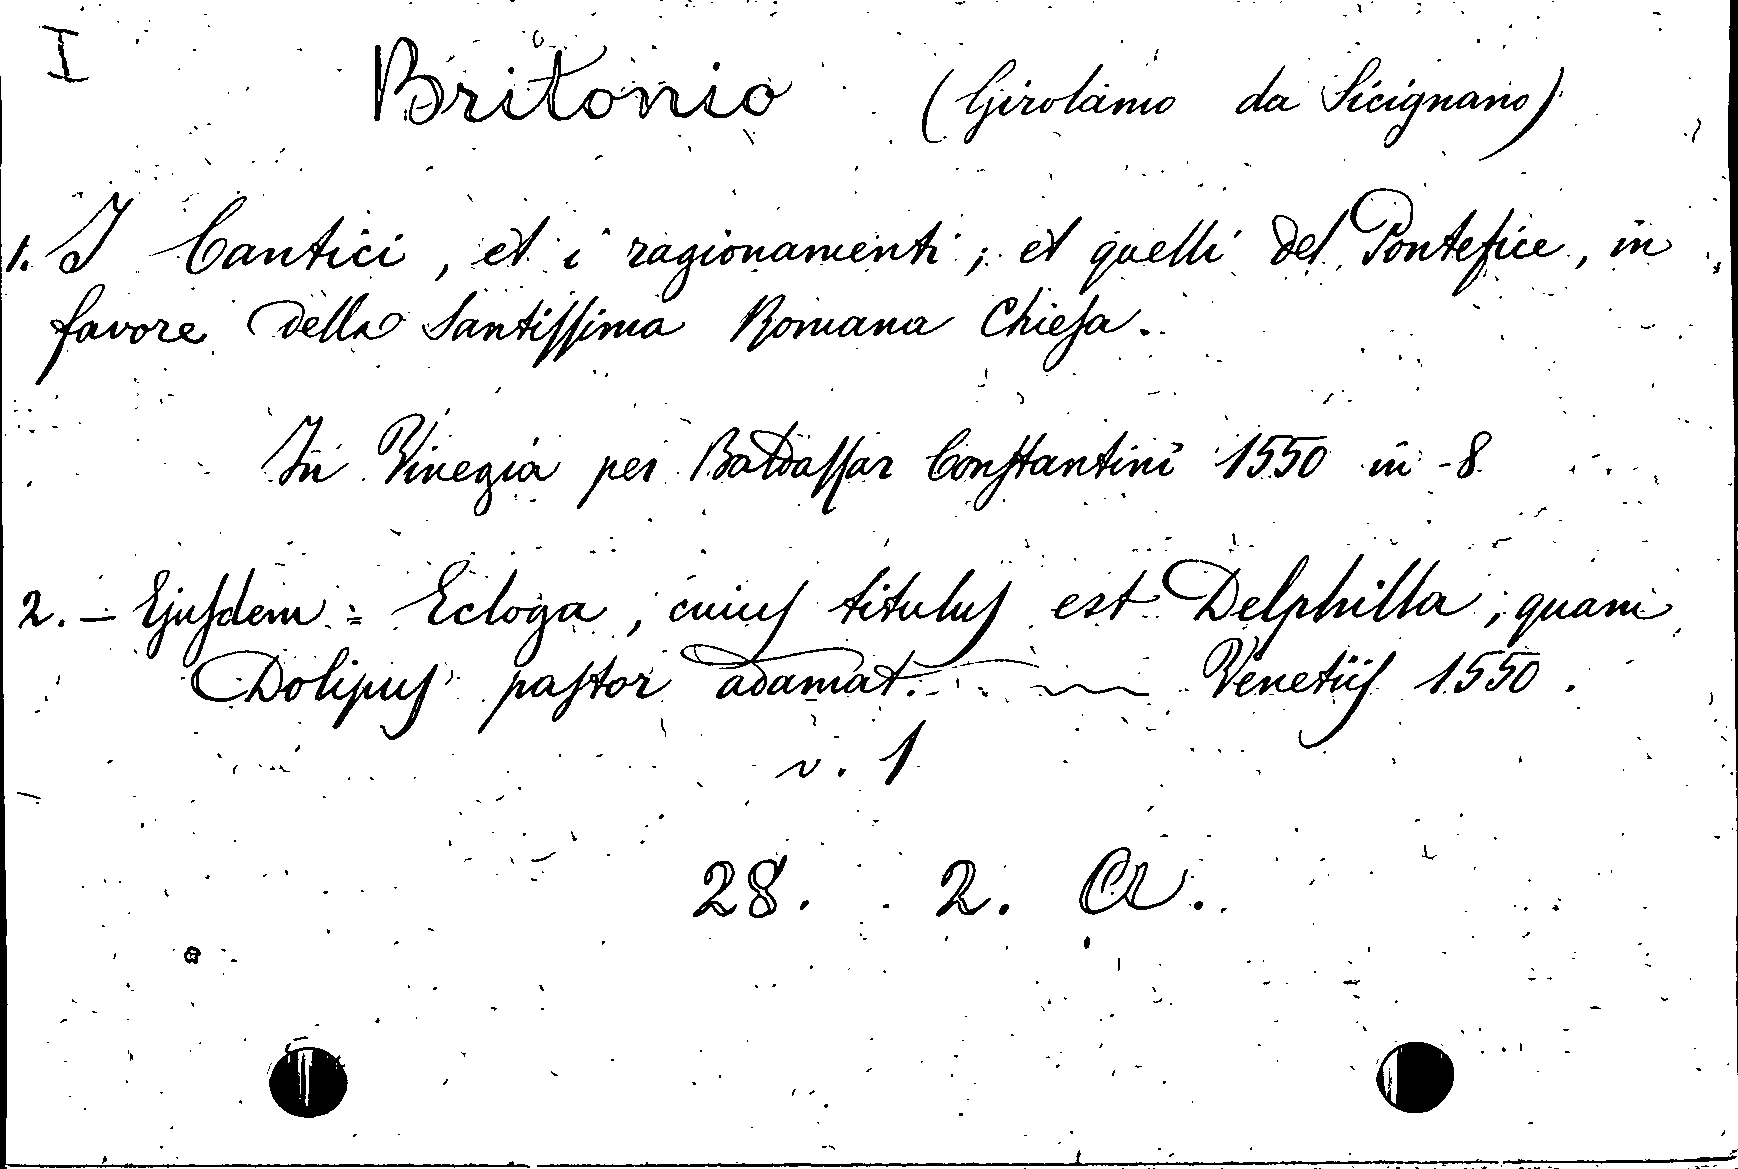 I
Britonio (Girolamo da Sicignano)
1. I Cantici, et i ragionamenti; et quelli del Pontefice, in
favore della Santissima Romana Chiesa.
In Vinegia per Baldassar Constantini 1550 in-8
2. — Ejusdem = Ecloga, cuius titulus est Delphilla; quam
Dolipus pastor adamat. — Venetiis 1550.
v. 1
28. 2. A.